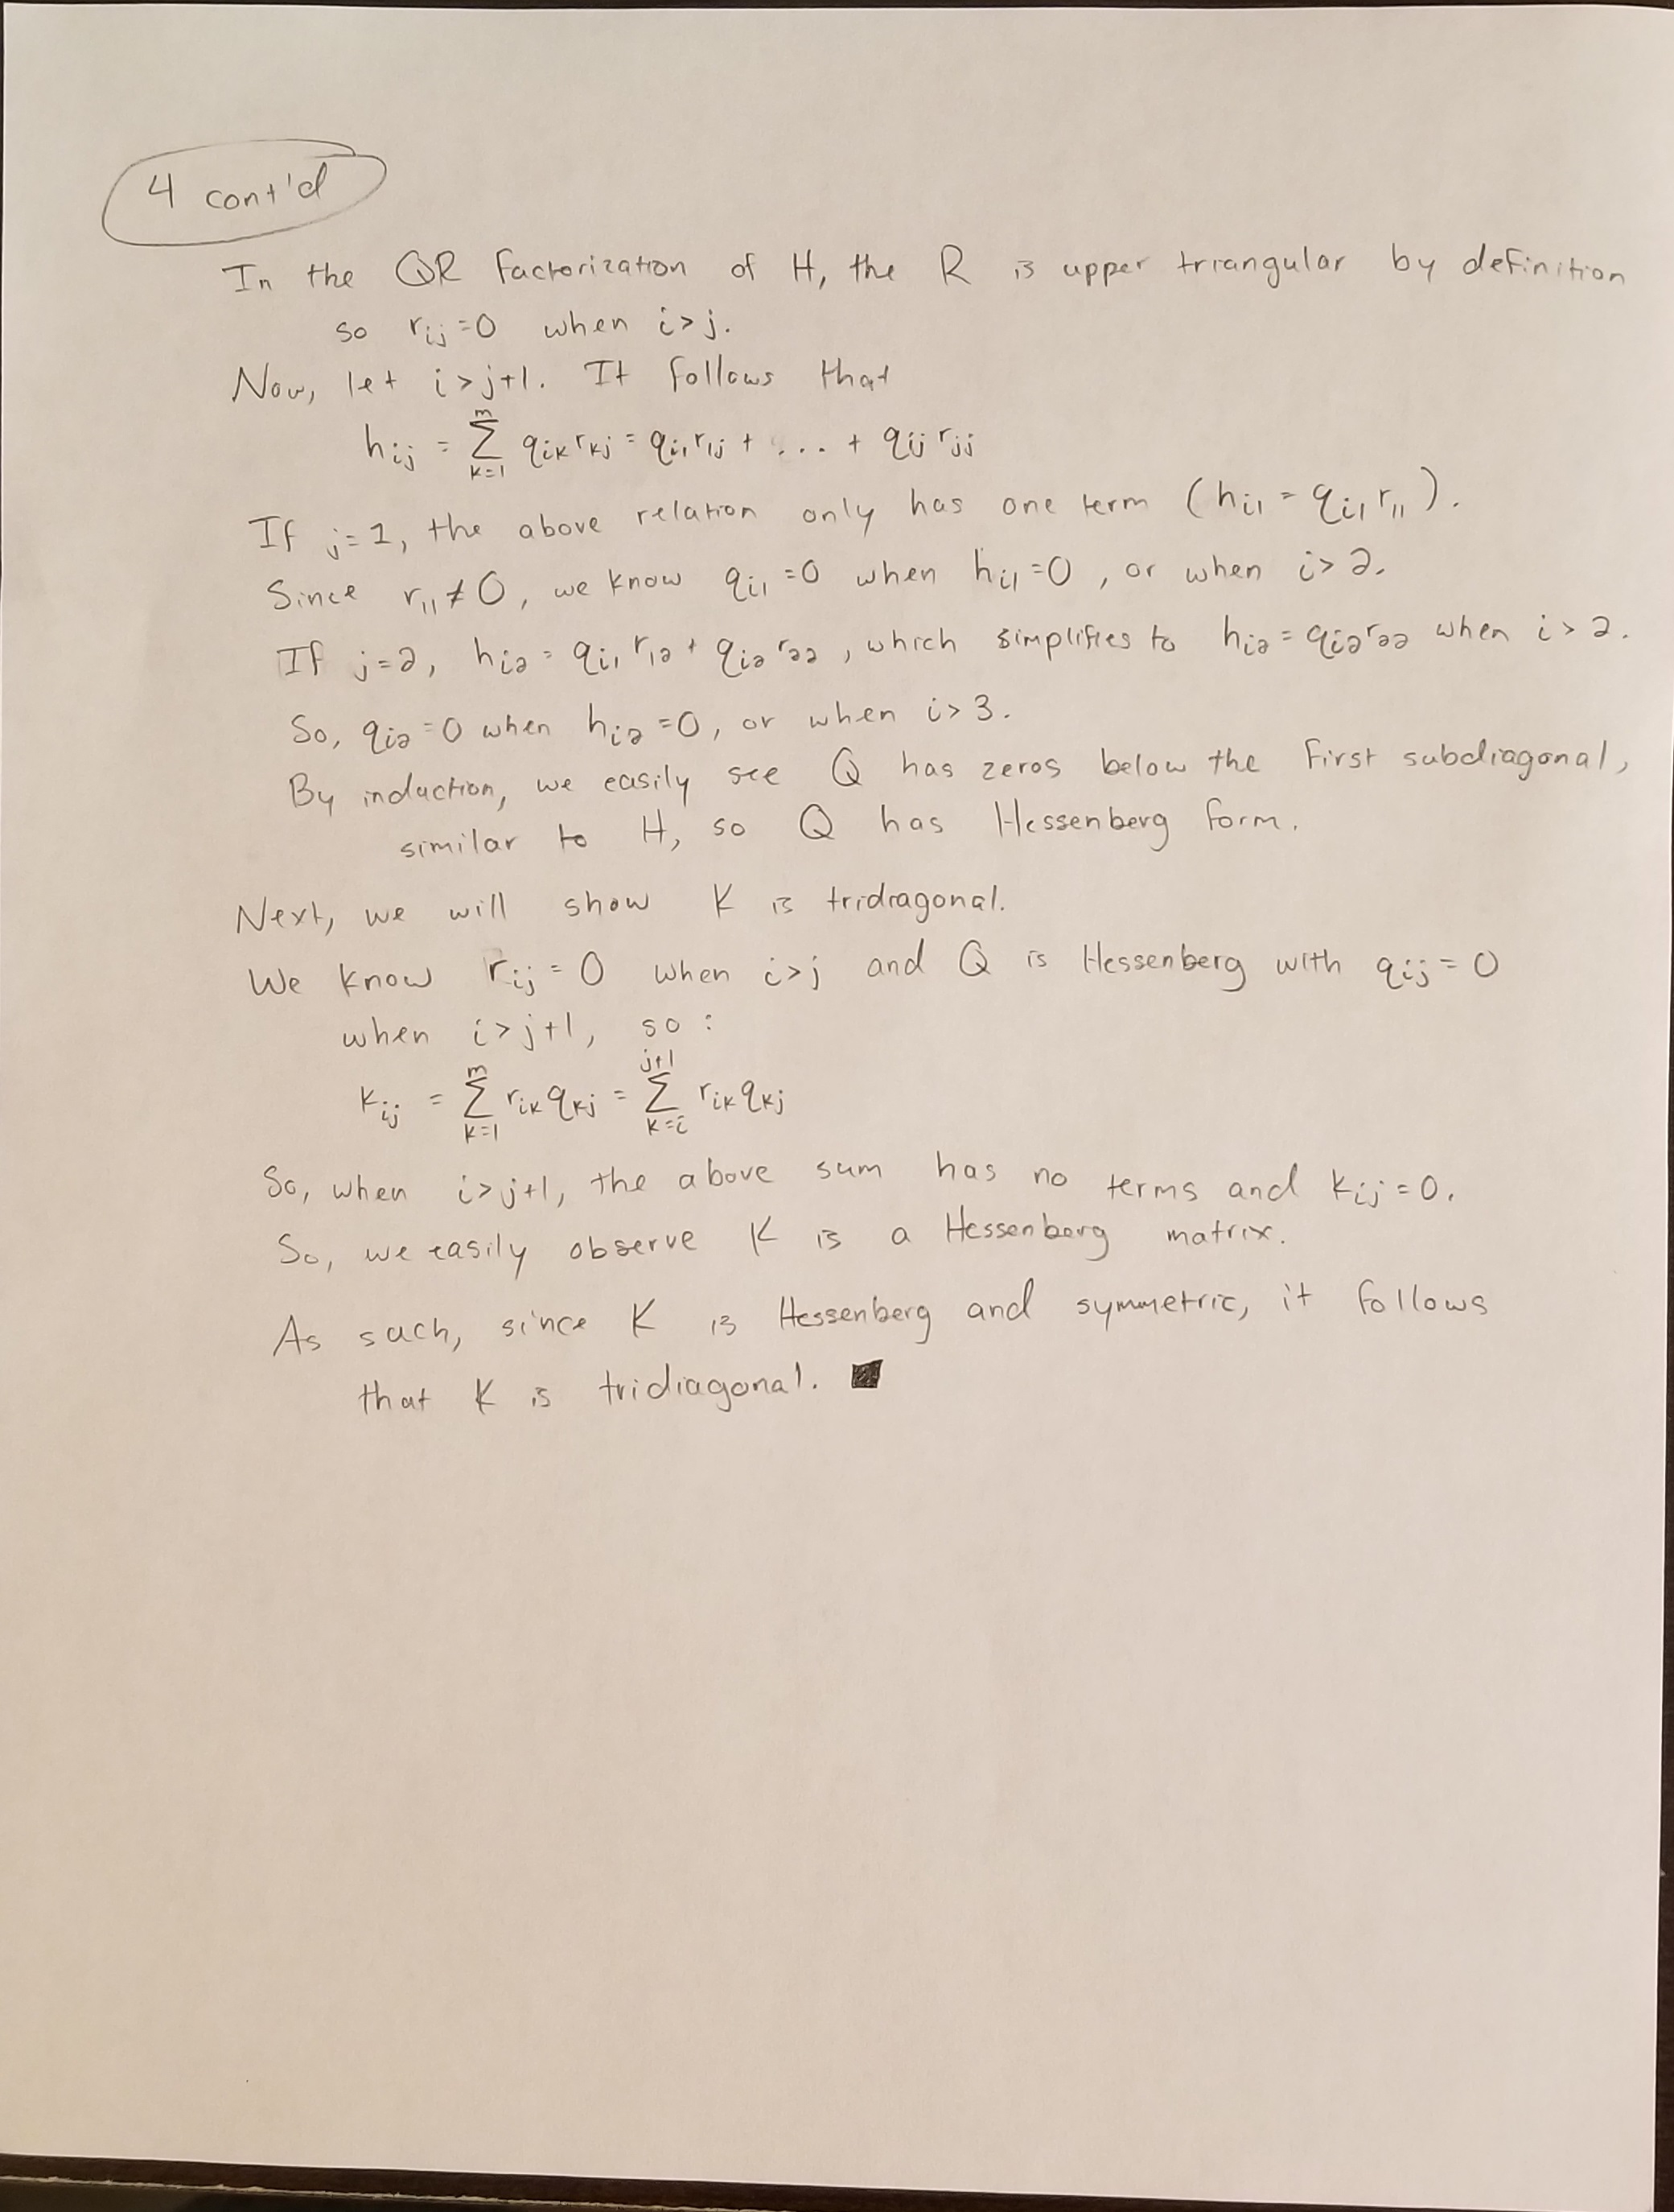 4 cont'd
In the QR factorization of H, the R is upper triangular by definition
so r_{ij}=0 when i>j.
Now, let i>j+1. It follows that
h_{ij} = \sum_{k=1}^{m} q_{ik} r_{kj} = q_{i1} r_{1j} + ... + q_{ij} r_{jj}
If j=1, the above relation only has one term (h_{i1} = q_{i1} r_{11}).
Since r_{11} ≠ 0, we know q_{i1} = 0 when h_{i1} = 0, or when i>2.
If j=2, h_{i2} = q_{i1} r_{12} + q_{i2} r_{22}, which simplifies to h_{i2} = q_{i2} r_{22} when i>2.
So, q_{i2} = 0 when h_{i2} = 0, or when i>3.
By induction, we easily see Q has zeros below the first subdiagonal,
similar to H, so Q has Hessenberg form.
Next, we will show K is tridiagonal.
We know r_{ij} = 0 when i>j and Q is Hessenberg with q_{ij} = 0
when i>j+1, so:
K_{ij} = \sum_{k=1}^{m} r_{ik} q_{kj} = \sum_{k=i}^{j+1} r_{ik} q_{kj}
So, when i>j+1, the above sum has no terms and K_{ij} = 0.
So, we easily observe K is a Hessenberg matrix.
As such, since K is Hessenberg and symmetric, it follows
that K is tridiagonal. ■